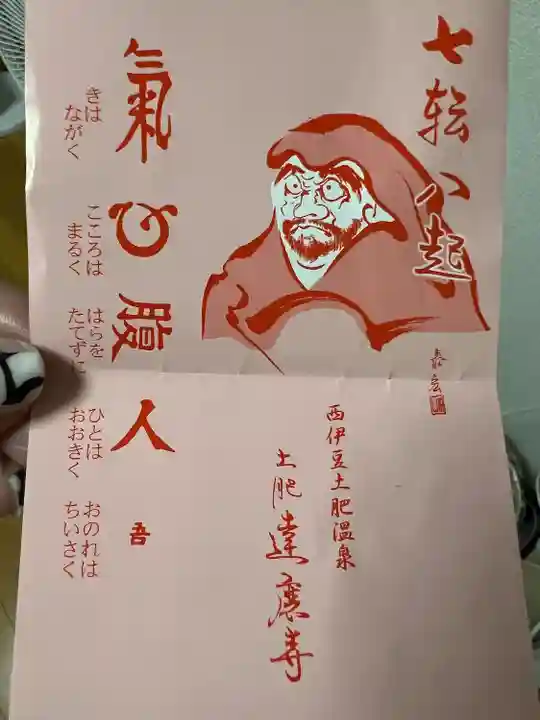 七転八起
泰宏
西伊豆土肥温泉
土肥達磨寺
氣心腹人吾
きは
ながく
こころは
まるく
はらを
たてずに
ひとは
おおきく
おのれは
ちいさく